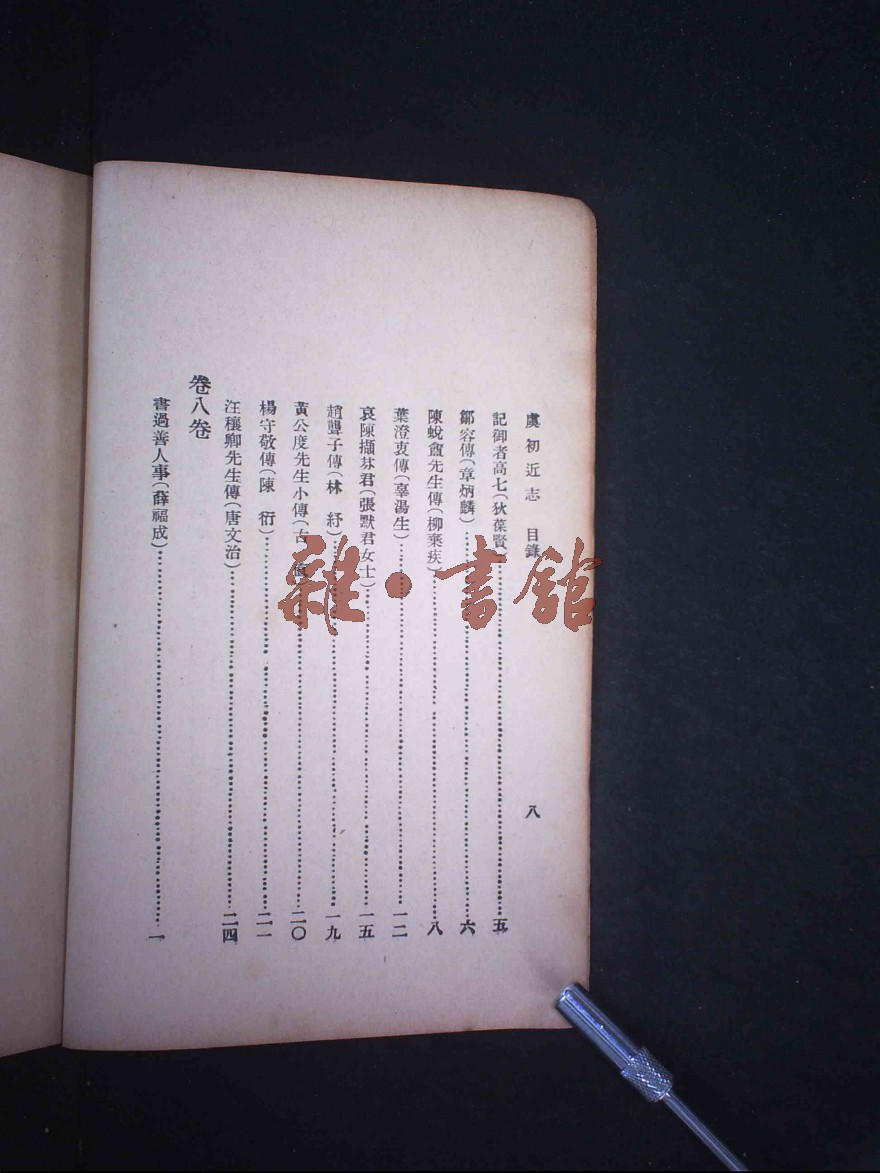 虞初近志 目錄 八
記御者高七(狄葆賢)……五
鄒容傳(章炳麟)……六
陳蛻盦先生傳(柳棄疾)……八
葉澄衷傳(辜湯生)……一二
哀陳擷芬君(張默君女士)……一五
趙聾子傳(林紓)……一九
黃公度先生小傳(古 )……二〇
楊守敬傳(陳衍)……二一
汪穰卿先生傳(唐文治)……二四
卷八卷
書過善人事(薛福成)……一
雜·書館